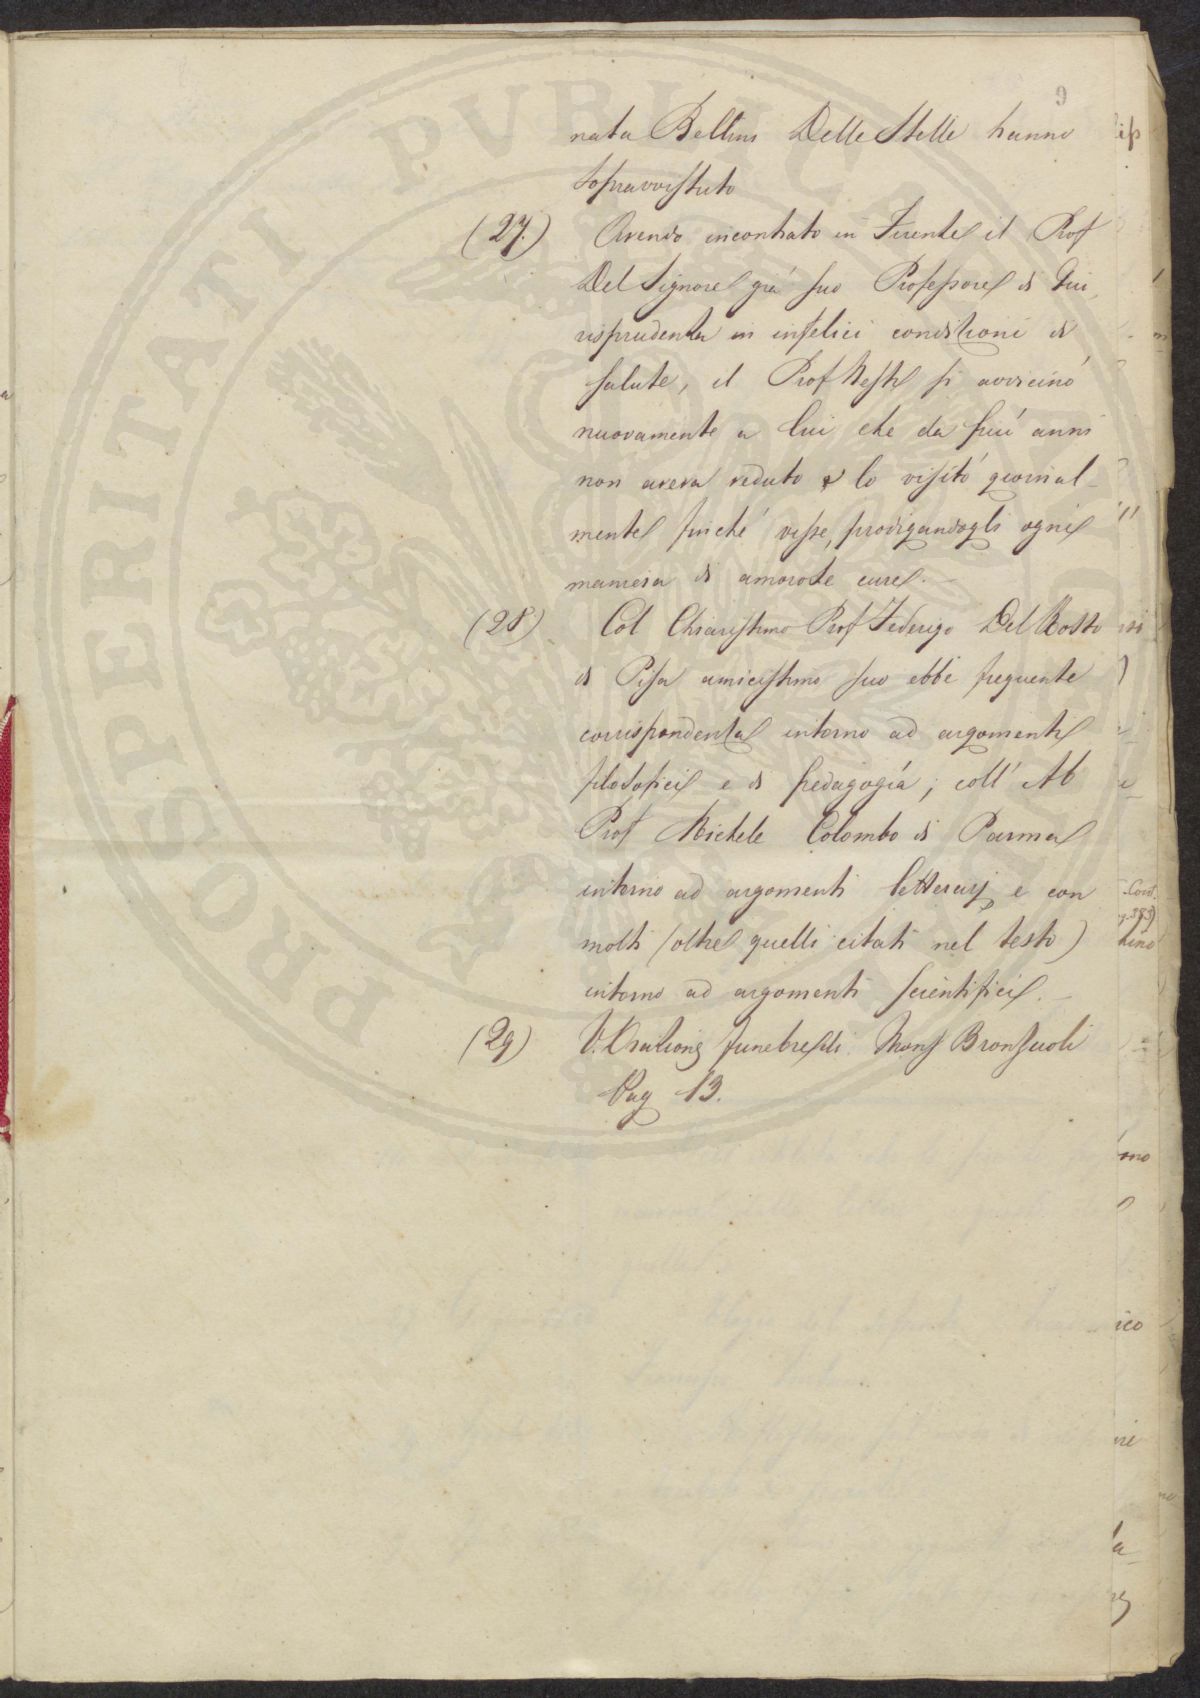 9
nata Bellini Delle Stelle hanno
sopravvissuto
(27.) Avendo incontrato in Firenze il Prof
Del Signore già suo Professore di Giu
risprudenza in infelici condizioni di
salute, il Prof Nesti si avvicinò
nuovamente a lui che da più anni
non aveva veduto e lo visitò giornal-
mente finché visse, prodigandogli ogni
maniera di amorose cure.
(28) Col Chiarissimo Prof Federigo Del Rosso
di Pisa amicissimo suo ebbe frequente
corrispondenza intorno ad argomenti
filosofici e di pedagogía; coll' Ab
Prof Michele Colombo di Parma
intorno ad argomenti letterarj e con
molti (oltre quelli citati nel testo)
intorno ad argomenti scientifici.
(29) V. Orazione funebre di Mons Bronzuoli
Pag 13.
PROSPERITATI PVBLICAE